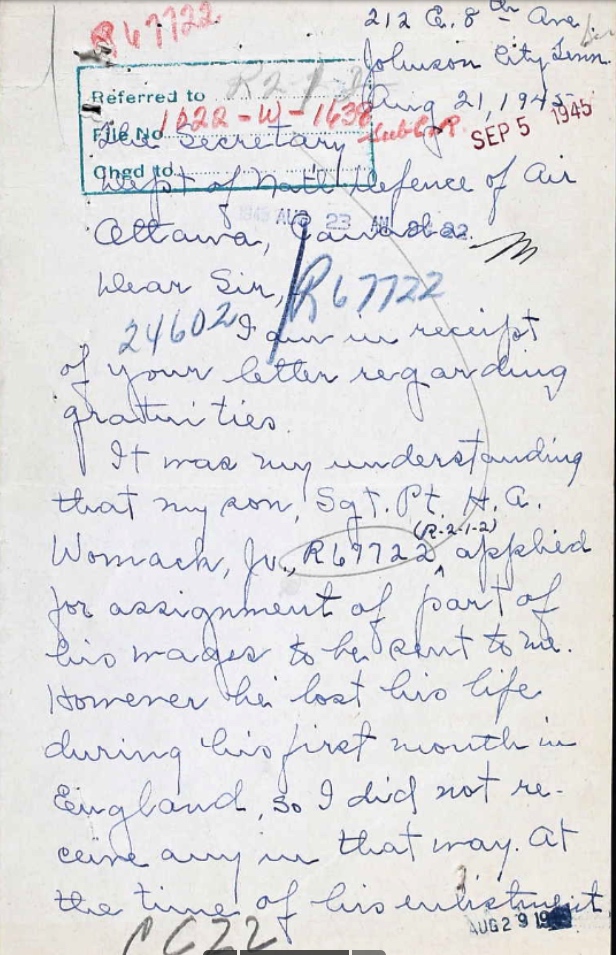 R67722
212 E. 8th Ave.
Johnson City Tenn.
Aug 21, 1945
SEP 5 1945
Referred to R212
File No 1022-W-1638
Chgd to
The Secretary
Dept of Nat'l Defence of Air
Ottawa, Canada.
AUG 23 AM
Dear Sir,
R67722
24602
I am in receipt
of your letter regarding
gratuities.
It was my understanding
that my son, Sgt. Pt. H. A.
(R-2-1-2)
Womack, Jr., R69722, applied
for assignment of part of
his wages to be sent to me.
However he lost his life
during his first month in
England, so I did not re-
ceive any in that way. At
the time of his enlistment
AUG 29